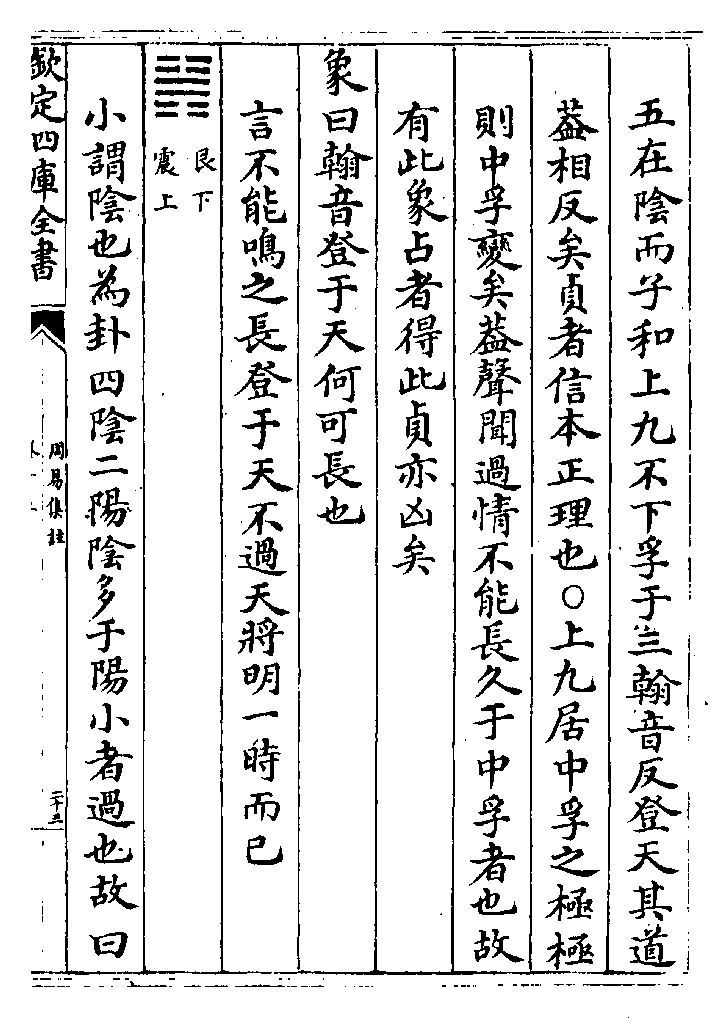 五在陰而子和上九不下孚于三翰音反登天其道
葢相反矣貞者信本正理也○上九居中孚之極極
則中孚變矣葢聲聞過情不能長久于中孚者也故
有此象占者得此貞亦凶矣
象曰翰音登于天何可長也
言不能鳴之長登于天不過天將明一時而已
艮下
震上
小謂陰也為卦四陰二陽陰多于陽小者過也故曰
欽定四庫全書
周易集註